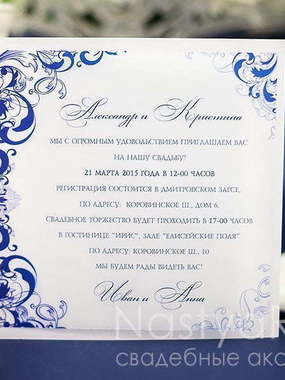 Александр и Кристина
МЫ С ОГРОМНЫМ УДОВОЛЬСТВИЕМ ПРИГЛАШАЕМ ВАС
НА НАШУ СВАДЬБУ!
21 МАРТА 2015 ГОДА В 12-00 ЧАСОВ
РЕГИСТРАЦИЯ СОСТОИТСЯ В ДМИТРОВСКОМ ЗАГСЕ,
ПО АДРЕСУ: КОРОВИНСКОЕ ШОССЕ, ДОМ 6.
СВАДЕБНОЕ ТОРЖЕСТВО БУДЕТ ПРОХОДИТЬ В 17-00 ЧАСОВ
В ГОСТИНИЦЕ "ИРИС", ЗАЛЕ "ЕЛИСЕЙСКИЕ ПОЛЯ"
ПО АДРЕСУ: КОРОВИНСКОЕ Ш., 10
МЫ БУДЕМ РАДЫ ВИДЕТЬ ВАС!
Иван и Анна
свадебные акс